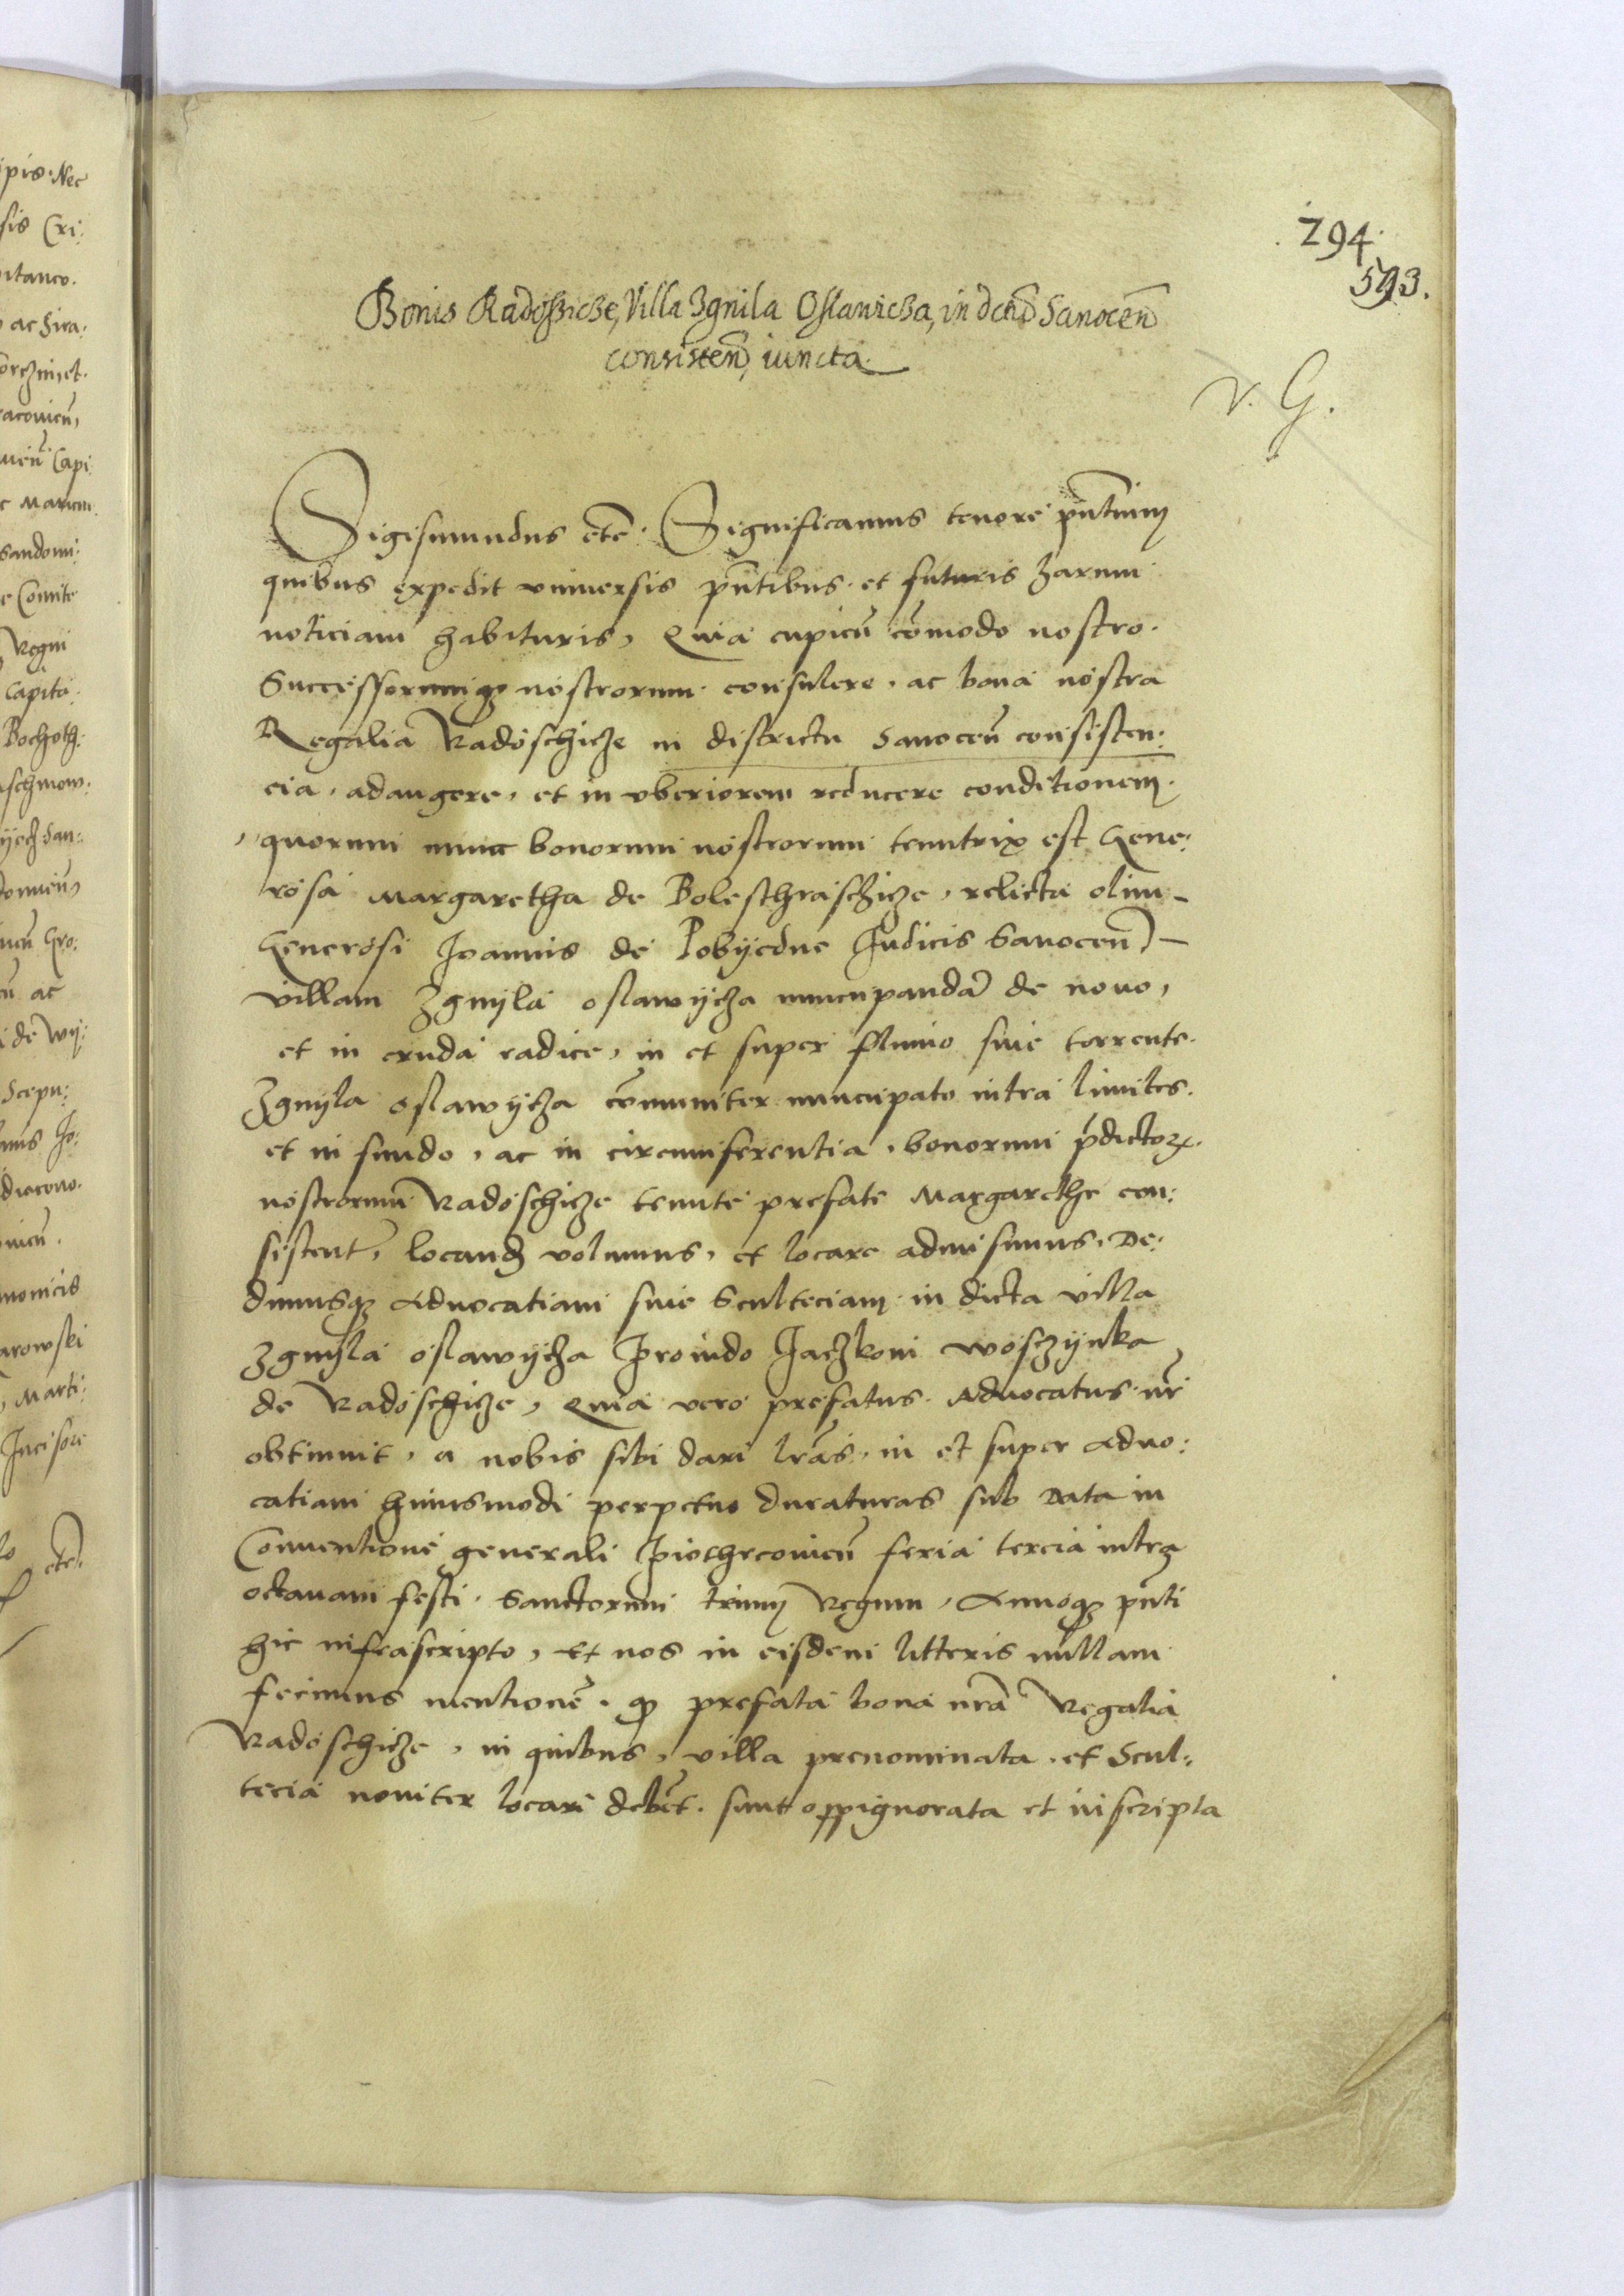 294.
593.
Bonis Radoszicze, Villa Zgnila Oslawicza, in dctũ Sanoceñ
consisteñ, iuncta.
V. G.
Sigismundus etc̃. Significamus tenore pñtium
quibus expedit universis pñtibus. et futuris harum
noticiam habituris, Quia cupieñ cõmodo nostro.
Successorumqꝫ nostrorum. consulere. ac bona nostra
Regalia Radoschicze in districtu Sanoceñ consisten:
cia. adaugere, et in vberiorem reducere conditionem.
quorum nunc bonorum nostrorum tenutrix est Gene:
rosa Margaretha de Boleschraschicze, relicta olim
Generosi Joannis de Pobyedne Judicis Sanoceñ
villam Zgnyla oslawycza nuncupandã de nouo,
et in cruda radice, in et super fluuio siue torrente.
Zgnyla oslawycza cõmuniter nuncupato intra limites.
et in fundo, ac in circumferentia, bonorum p̃dictoꝝ.
nostrorum Radoschicze tenute prefate Margarethe con:
sistent̃, locand̃ volumus, et locare admisimus. De:
dimusqꝫ Aduocatiam siue Sculteciam in dicta villa
Zgnyla oslawycza Prouido Jaczkoni Wosczynka
de Radoschicze, Quia vero prefatus. Aduocatus nr̃
obtinuit, a nobis sibi dari lr̃as, in et super aduo:
catiam huiusmodi perpetuo duraturas sub Data in
Conuentione generali Piothrcouieñ feria tercia intra
octauam festi. Sanctorum trium Regum, Annoqꝫ pñti
hic infrascripto, Et nos in eisdem litteris nullam
fecimus mentionẽ. qꝫ prefata bona nr̃a Regalia
Radoschicze, in quibus, villa prenominata. et Scul:
tecia nouiter locari debet. sunt oppignorata et inscripta